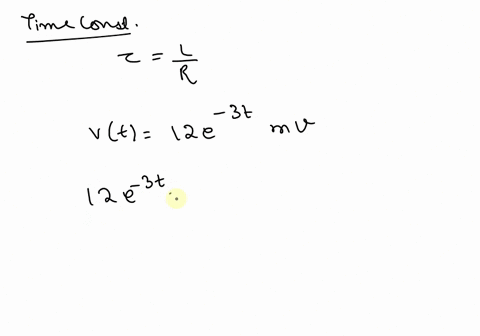 Time Const.
τ = L/R
v(t) = 12e^{-3t} mV
12e^{-3t}